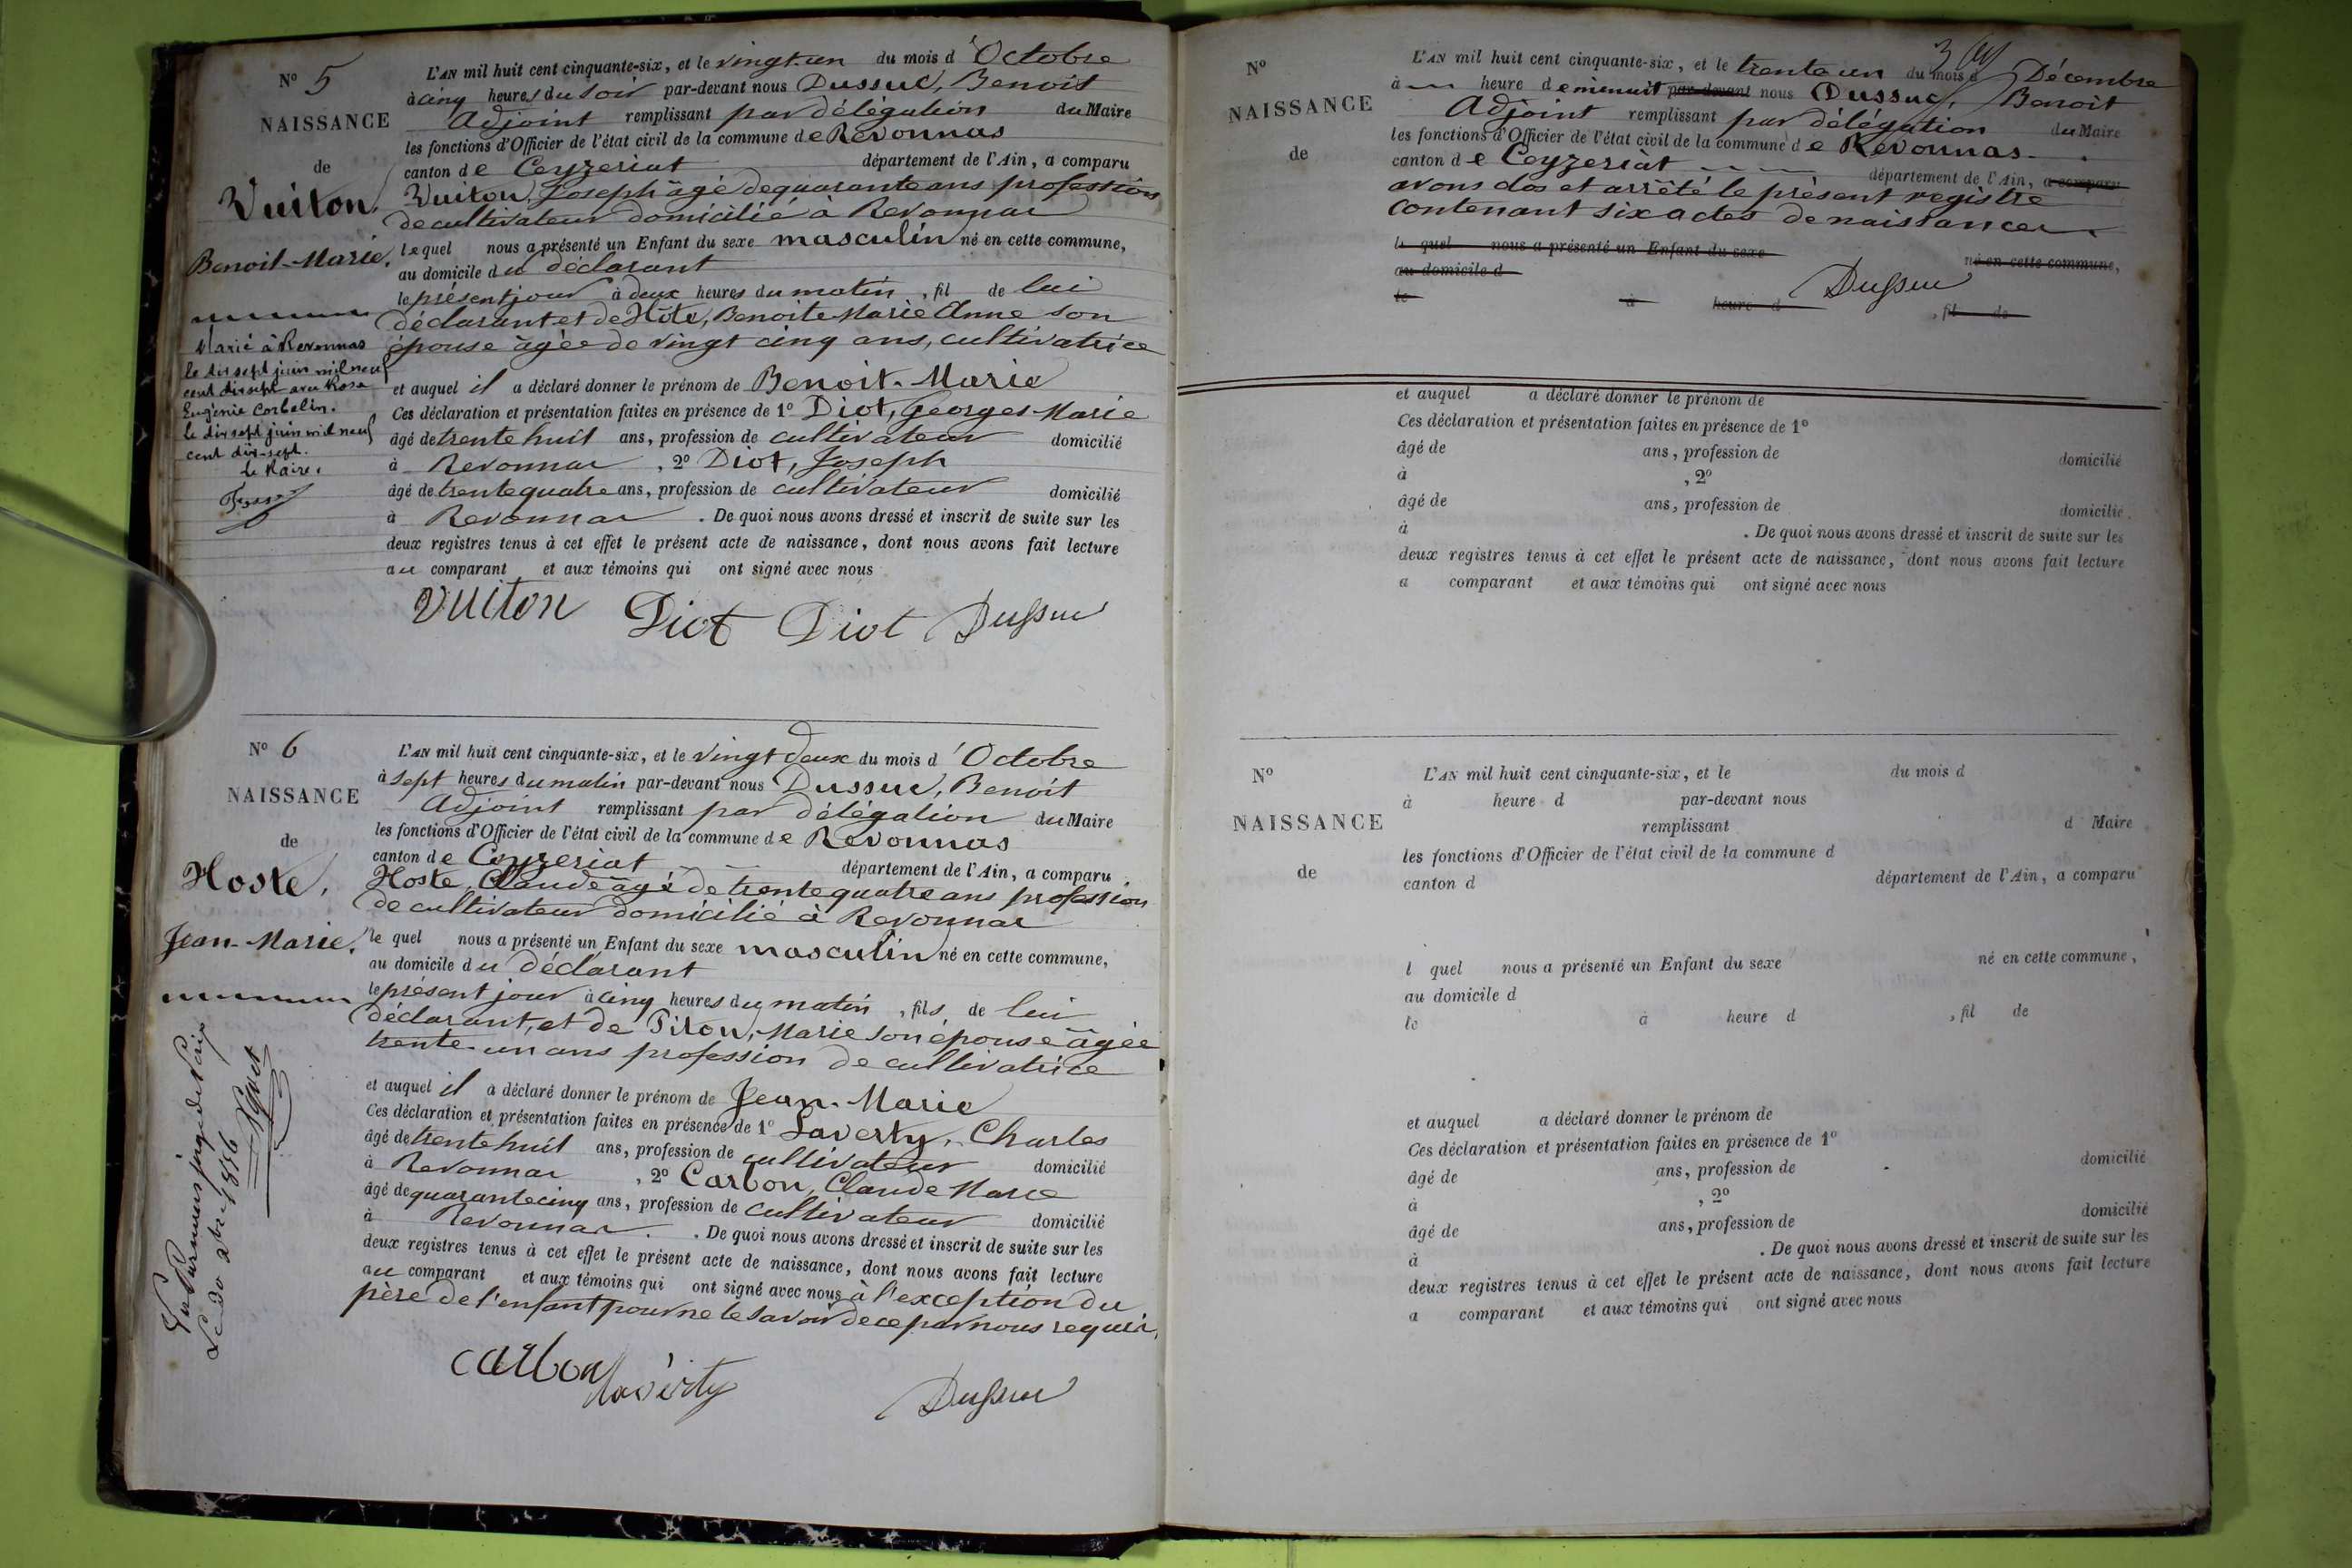 N° 5
NAISSANCE
de
Vuiton,
Benoit-Marie.
Marié à Revonnas
le dix sept juin mil neuf
cent dix sept avec Rosa
Eugènie Corbelin.
le dix sept juin mil neuf
cent dix-sept.
le Maire.
L'AN mil huit cent cinquante-six, et le vingt-un du mois d'Octobre
à cinq heures du soir par-devant nous Dussuc, Benoit
Adjoint remplissant par délégation du Maire
les fonctions d'Officier de l'état civil de la commune de Revonnas
canton de Ceyzeriat département de l'Ain, a comparu
Vuiton, Joseph âgé de quarante ans profession
de cultivateur domicilié à Revonnas
lequel nous a présenté un Enfant du sexe masculin né en cette commune,
au domicile du déclarant
le présent jour à deux heures du matin, fil de lui
déclarant et de Hôte, Benoite Marie Anne son
épouse âgée de vingt cinq ans, cultivatrice
et auquel il a déclaré donner le prénom de Benoit-Marie
Ces déclaration et présentation faites en présence de 1° Diot, Georges-Marie
âgé de trente huit ans, profession de cultivateur domicilié
à Revonnas, 2° Diot, Joseph
âgé de trente quatre ans, profession de cultivateur domicilié
à Revonnas. De quoi nous avons dressé et inscrit de suite sur les
deux registres tenus à cet effet le présent acte de naissance, dont nous avons fait lecture
au comparant et aux témoins qui ont signé avec nous
Vuiton Diot Diot Dussuc
N° 6
NAISSANCE
de
Hoste,
Jean-Marie.
Le 20 1886
L'AN mil huit cent cinquante-six, et le vingt deux du mois d'Octobre
à sept heures du matin par-devant nous Dussuc, Benoit
Adjoint remplissant par délégation du Maire
les fonctions d'Officier de l'état civil de la commune de Revonnas
canton de Ceyzeriat département de l'Ain, a comparu
Hoste, Claude âgé de trente quatre ans profession
de cultivateur domicilié à Revonnas
le quel nous a présenté un Enfant du sexe masculin né en cette commune,
au domicile du déclarant
le présent jour à cinq heures du matin, fils de lui
déclarant, et de Piron, Marie son épouse âgée
trente-un ans profession de cultivatrice
et auquel il a déclaré donner le prénom de Jean-Marie
Ces déclaration et présentation faites en présence de 1° Laverty, Charles
âgé de trente huit ans, profession de cultivateur domicilié
à Revonnas, 2° Carbon, Claude Marie
âgé de quarante cinq ans, profession de cultivateur domicilié
à Revonnas. De quoi nous avons dressé et inscrit de suite sur les
deux registres tenus à cet effet le présent acte de naissance, dont nous avons fait lecture
au comparant et aux témoins qui ont signé avec nous à l'exception du
père de l'enfant pour ne le savoir de ce par nous requis.
Carbon Laverty Dussuc
N°
NAISSANCE
de
L'AN mil huit cent cinquante-six, et le trente un du mois d Décembre
à heure de minuit par-devant nous Dussuc, Benoit
Adjoint remplissant par délégation du Maire
les fonctions d'Officier de l'état civil de la commune de Revonnas
canton de Ceyzeriat département de l'Ain, a comparu
avons clos et arrêté le présent registre
contenant six actes de naissances.
l quel nous a présenté un Enfant du sexe né en cette commune,
au domicile d
le à heure d , fil de
Dussuc
et auquel a déclaré donner le prénom de
Ces déclaration et présentation faites en présence de 1°
âgé de ans, profession de domicilié
à , 2°
âgé de ans, profession de domicilié
à . De quoi nous avons dressé et inscrit de suite sur les
deux registres tenus à cet effet le présent acte de naissance, dont nous avons fait lecture
a comparant et aux témoins qui ont signé avec nous
N°
NAISSANCE
de
L'AN mil huit cent cinquante-six, et le du mois d
à heure d par-devant nous
remplissant d Maire
les fonctions d'Officier de l'état civil de la commune d
canton d département de l'Ain, a comparu
l quel nous a présenté un Enfant du sexe né en cette commune,
au domicile d
le à heure d , fil de
et auquel a déclaré donner le prénom de
Ces déclaration et présentation faites en présence de 1°
âgé de ans, profession de domicilié
à , 2°
âgé de ans, profession de domicilié
à . De quoi nous avons dressé et inscrit de suite sur les
deux registres tenus à cet effet le présent acte de naissance, dont nous avons fait lecture
a comparant et aux témoins qui ont signé avec nous